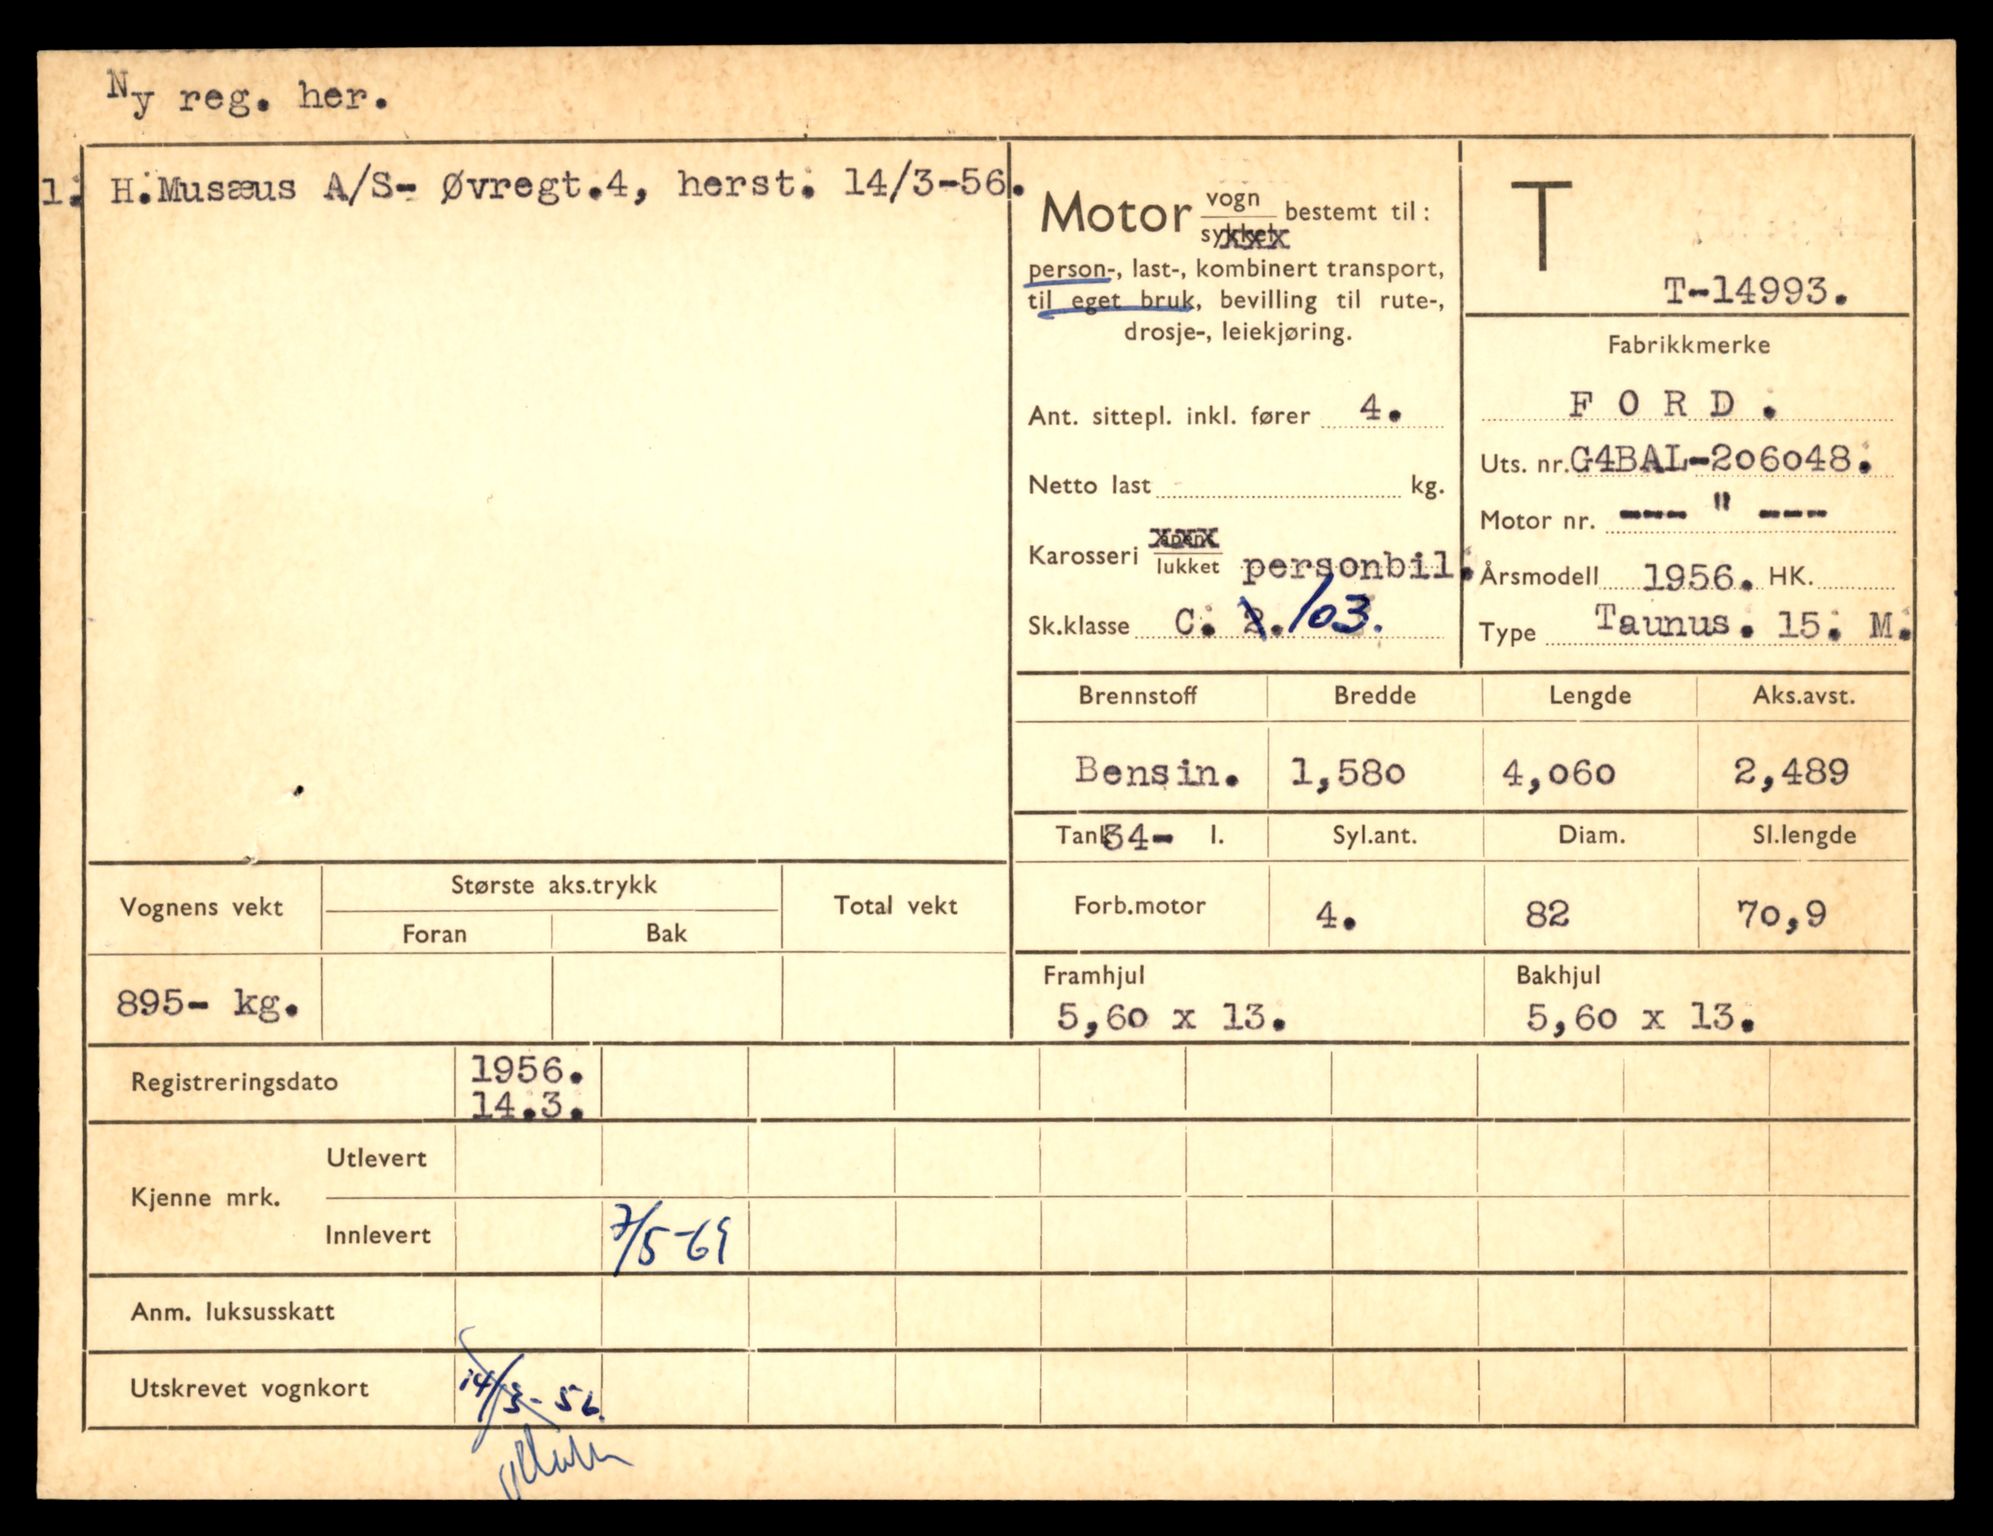 Ny reg. her.
1. H.Musæus A/S- Øvregt.4, herst. 14/3-56.
Motor vogn bestemt til:
sykkel
person-, last-, kombinert transport,
til eget bruk, bevilling til rute-,
drosje-, leiekjøring.
Ant. sittepl. inkl. fører 4.
Netto last kg.
Karosseri åpent
lukket personbil.
Sk.klasse C. 2. 103.
T
T-14993.
Fabrikkmerke
FORD.
Uts. nr. G4BAL-206048.
Motor nr. --- " ---
Årsmodell 1956. HK.
Type Taunus. 15. M.
Brennstoff Bredde Lengde Aks.avst.
Bensin. 1,580 4,060 2,489
Tank 34- l. Syl.ant. Diam. Sl.lengde
Forb.motor 4. 82 70,9
Framhjul Bakhjul
5,60 x 13. 5,60 x 13.
Vognens vekt Største aks.trykk Total vekt
Foran Bak
895- kg.
Registreringsdato 1956.
14.3.
Kjenne mrk. Utlevert
Innlevert 7/5-69
Anm. luksusskatt
Utskrevet vognkort 14/3-56.